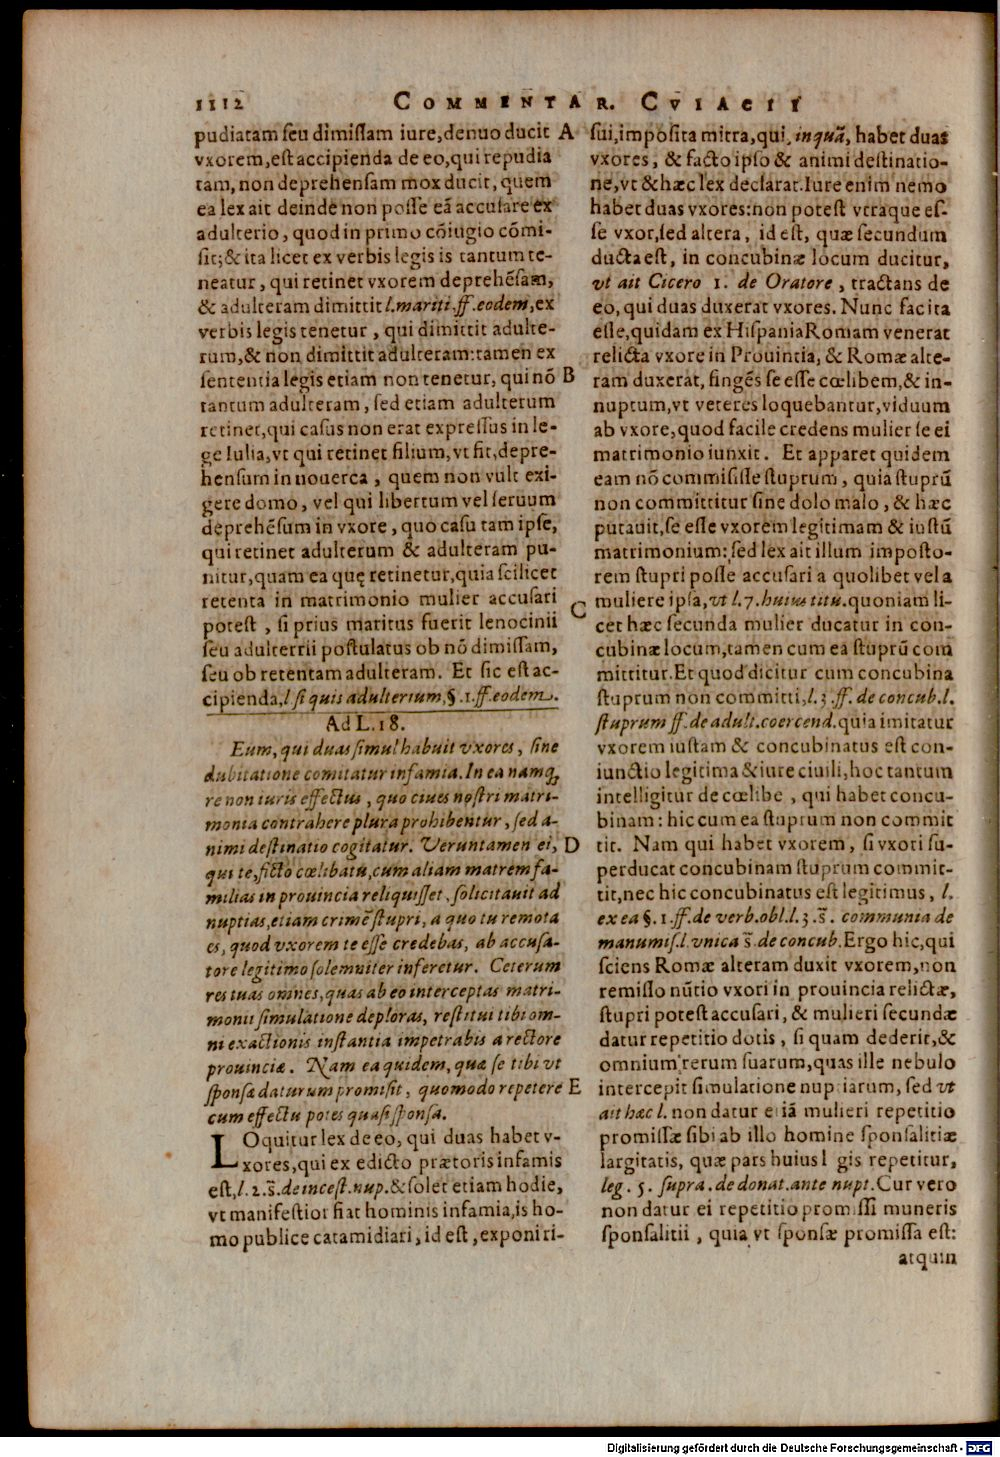 1112 COMMENTAR. CVIACII
pudiatam ſeu dimiſſam iure, denuo ducit
vxorem, eſt accipienda de eo, qui repudia
tam, non deprehenſam mox ducit, quem
ea lex ait deinde non poſſe eā accuſare ex
adulterio, quod in primo cōiugio cōmi-
ſit; & ita licet ex verbis legis is tantum te-
neatur, qui retinet vxorem deprehēſam,
& adulteram dimittit l. mariti. ff. eodem, ex
verbis legis tenetur, qui dimittit adulte-
rum, & non dimittit adulteram: tamen ex
ſententia legis etiam non tenetur, qui nō
tantum adulteram, ſed etiam adulterum
retinet, qui caſus non erat expreſſus in le-
ge Iulia, vt qui retinet filium, vt fit, depre-
henſum in nouerca, quem non vult exi-
gere domo, vel qui libertum vel ſeruum
deprehēſum in vxore, quo caſu tam ipſe,
qui retinet adulterum & adulteram pu-
nitur, quam ea quę retinetur, quia ſcilicet
retenta in matrimonio mulier accuſari
poteſt, ſi prius maritus fuerit lenocinii
ſeu adulterrii poſtulatus ob nō dimiſſam,
ſeu ob retentam adulteram. Et ſic eſt ac-
cipienda, l. ſi quis adulterium, §. 1. ff. eodem.
Ad L. 18.
Eum, qui duas ſimul habuit vxores, ſine
dubitatione comitatur infamia. In ea namq;
re non iuris effectus, quo ciues noſtri matri-
monia contrahere plura prohibentur, ſed a-
nimi deſtinatio cogitatur. Veruntamen ei,
qui te, ficto cœlibatu, cum aliam matrem fa-
milias in prouincia reliquiſſet, ſolicitauit ad
nuptias, etiam crimē ſtupri, a quo tu remota
es, quod vxorem te eſſe credebas, ab accuſa-
tore legitimo ſolemniter inferetur. Ceterum
res tuas omnes, quas ab eo interceptas matri-
monii ſimulatione deploras, reſtitui tibi om-
ni exactionis inſtantia impetrabis a rectore
prouinciæ. Nam ea quidem, quæ ſe tibi vt
ſponſæ daturum promiſit, quomodo repetere
cum effectu potes quaſi ſponſa.
LOquitur lex de eo, qui duas habet v-
xores, qui ex edicto prætoris infamis
eſt, l. 2. s̄. de inceſt. nup. & ſolet etiam hodie,
vt manifeſtior fiat hominis infamia, is ho-
mo publice catamidiari, id eſt, exponi ri-
A
B
C
D
E
ſui, impoſita mitra, qui, inquā, habet duas
vxores, & facto ipſo & animi deſtinatio-
ne, vt & hæc lex declarat. Iure enim nemo
habet duas vxores: non poteſt vtraque eſ-
ſe vxor, ſed altera, id eſt, quæ ſecundum
ducta eſt, in concubinæ locum ducitur,
vt ait Cicero 1. de Oratore, tractans de
eo, qui duas duxerat vxores. Nunc fac ita
eſſe, quidam ex Hiſpania Romam venerat
relicta vxore in Prouincia, & Romæ alte-
ram duxerat, fingēs ſe eſſe cœlibem, & in-
nuptum, vt veteres loquebantur, viduum
ab vxore, quod facile credens mulier ſe ei
matrimonio iunxit. Et apparet quidem
eam nō commiſiſſe ſtuprum, quia ſtuprū
non committitur ſine dolo malo, & hæc
putauit, ſe eſſe vxorem legitimam & iuſtū
matrimonium: ſed lex ait illum impoſto-
rem ſtupri poſſe accuſari a quolibet vel a
muliere ipſa, vt l. 7. huius titu. quoniam li-
cet hæc ſecunda mulier ducatur in con-
cubinæ locum, tamen cum ea ſtuprū com
mittitur. Et quod dicitur cum concubina
ſtuprum non committi, l. 3. ff. de concub. l.
ſtuprum ff. de adult. coercend. quia imitatur
vxorem iuſtam & concubinatus eſt con-
iunctio legitima & iure ciuili, hoc tantum
intelligitur de cœlibe, qui habet concu-
binam: hic cum ea ſtuprum non commit
tit. Nam qui habet vxorem, ſi vxori ſu-
perducat concubinam ſtuprum commit-
tit, nec hic concubinatus eſt legitimus, l.
ex ea §. 1. ff. de verb. obl. l. 3. s̄. communia de
manumiſ. l. vnica s̄. de concub. Ergo hic, qui
ſciens Romæ alteram duxit vxorem, non
remiſſo nūtio vxori in prouincia relictæ,
ſtupri poteſt accuſari, & mulieri ſecundæ
datur repetitio dotis, ſi quam dederit, &
omnium rerum ſuarum, quas ille nebulo
intercepit ſimulatione nuptiarum, ſed vt
ait hæc l. non datur etiā mulieri repetitio
promiſſæ ſibi ab illo homine ſponſalitiæ
largitatis, quæ pars huius l gis repetitur,
leg. 5. ſupra. de donat. ante nupt. Cur vero
non datur ei repetitio promiſſi muneris
ſponſalitii, quia vt ſponſæ promiſſa eſt:
atquin
Digitalisierung gefördert durch die Deutsche Forschungsgemeinschaft - DFG